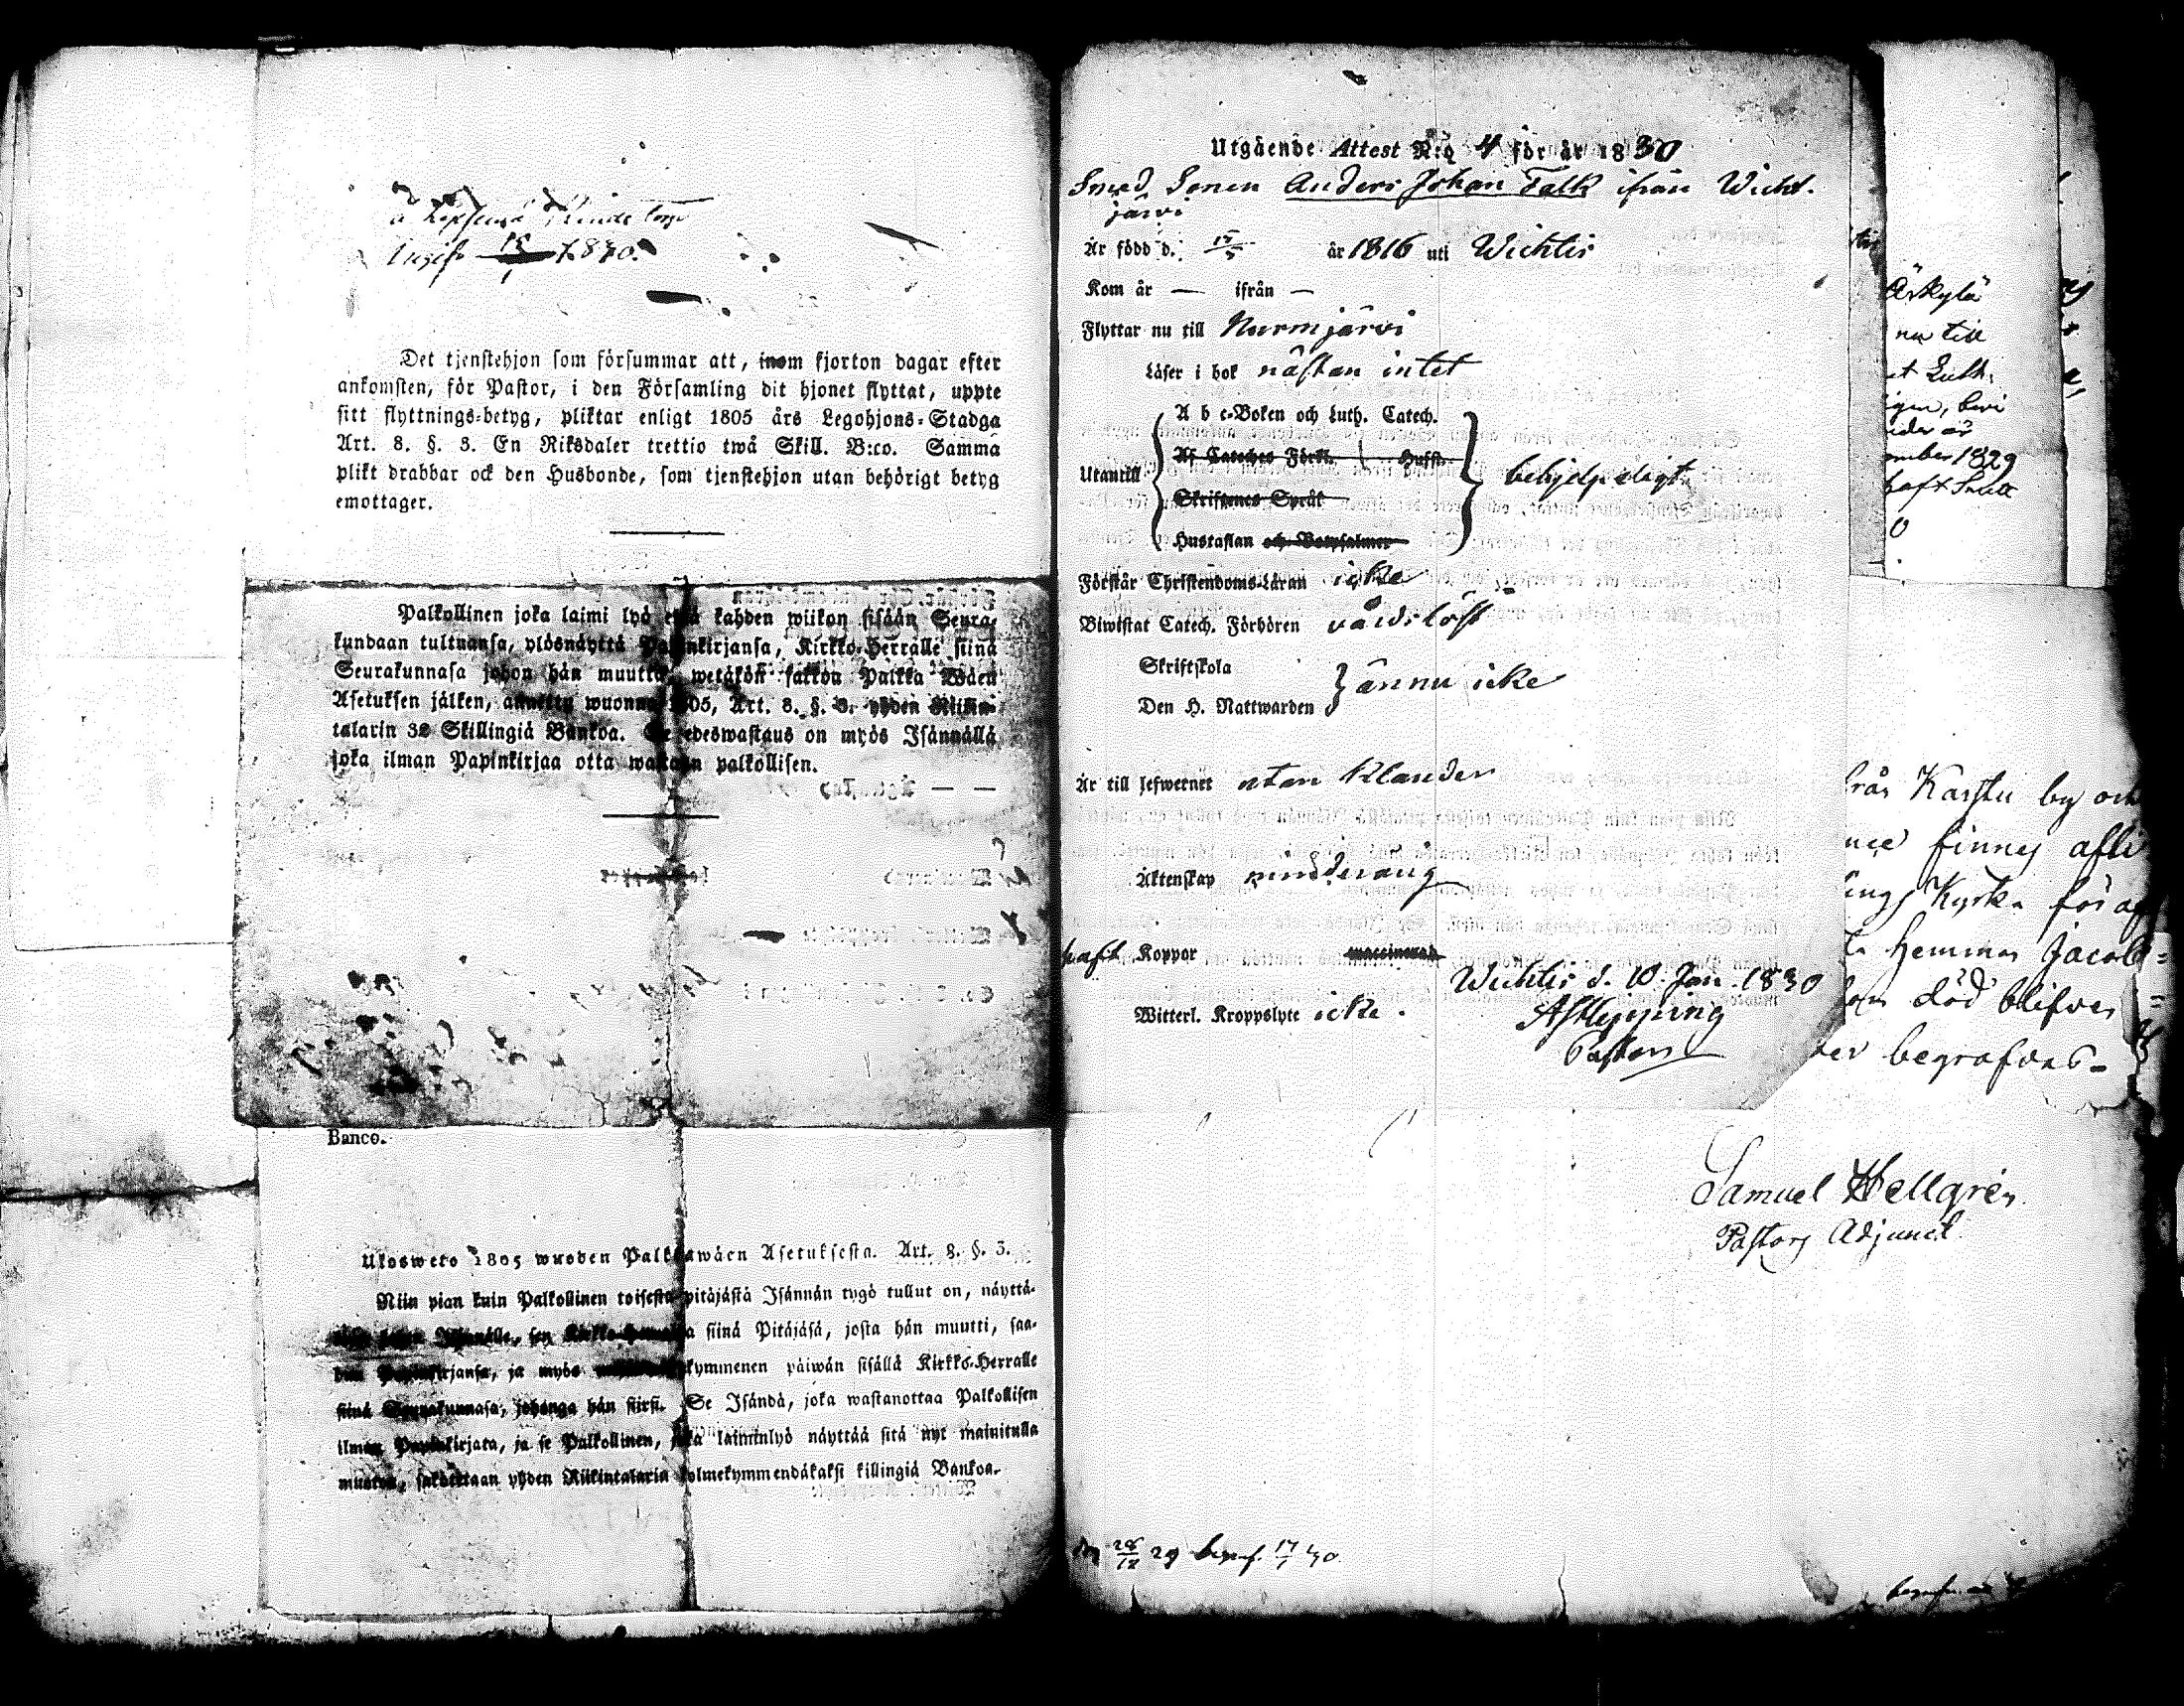 Ingifv. 15/1 1830.
Det tjenstehjon som försummar att, inom fjorton dagar efter
ankomsten, för Pastor, i den Församling dit hjonet flyttat, uppte
sitt flyttnings-betyg, pliktar enligt 1805 års Legohjons-Stadga
Art. 8. §. 3. En Riksdaler trettio twå Skill. B:co. Samma
plikt drabbar ock den Husbonde, som tjenstehjon utan behörigt betyg
emottager.
Palkollinen joka laimi lyö että kahden wiikon sisään Seura-
kundaan tultuansa, ylösnäyttä Papinkirjansa, Kirkko-Herralle siinä
Seurakunnasa johon hän muutta, wetäkön sakkoa Palkka Wäen
Asetuksen jälken, annettu wuonna 1805, Art. 8. §. 3. yhden Riikin-
talarin 32 Skillingiä Bankoa. Se edeswastaus on myös Isännällä
joka ilman Papinkirjaa otta wastaan palkollisen.
Banco.
Ulosweto 1805 wuoden Palkkawäen Asetuksesta. Art. 8. §. 3.
Niin pian kuin Palkollinen toisesta pitäjästä Isännän tygö tullut on, näyttä-
siinä Pitäjäsä, josta hän muutti, saa-
ja myös kymmenen päiwän sisällä Kirkko-Herralle
siinä Seurakunnasa, johonga hän siirsi. Se Isändä, joka wastanottaa Palkollisen
ilman Papinkirjata, ja se Palkollinen, joka laiminlyö näyttää sitä nyt mainitulla
muotoa, sakotetaan yhden Riikintalarin kolmekymmendäkaksi killingiä Bankoa.
Utgående Attest N:o 4 för år 1830
Smed Sonen Anders Johan Falk ifrån Wicht.
järvi
Är född d. 15/5 år 1816 uti Wichtis
Kom år — ifrån —
Flyttar nu till Nurmjärvi
Läser i bok nästan intet
A b c-Boken och Luth. Catech.
Af Cateches Förkl. Hufst.
Utantill Skriftenes Språk behjelpeligt
Hustaflan och Botpsalmer
Förstår Christendoms-Läran icke
Biwistat Catech. Förhören vårdslöst
Skriftskola
ännu icke
Den H. Nattwarden
Är till lefwernet utan klander
Äktenskap minderårig
haft Koppor vaccinerad
Wichtis d. 10 Jan. 1830
Witterl. Kroppslyte icke.
Pastor
nu till
et Luth.
1829
från Karstu by och
Kyrka för
Hemmas Jacob=
död blifven
begrafves-
Samuel Hellgrén
Pastors Adjunct.
28/12 29 begrf. 17/1 30